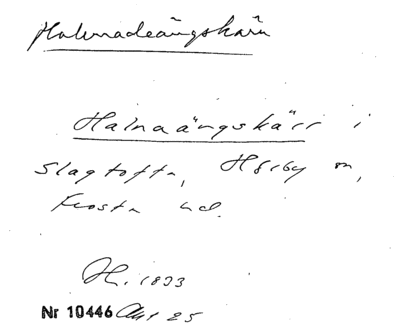 Halmadeängskärr
Halnaängskärr i
Slagtofta, Hörby sn,
Frosta hd.
H. 1893
Nr 10446 25